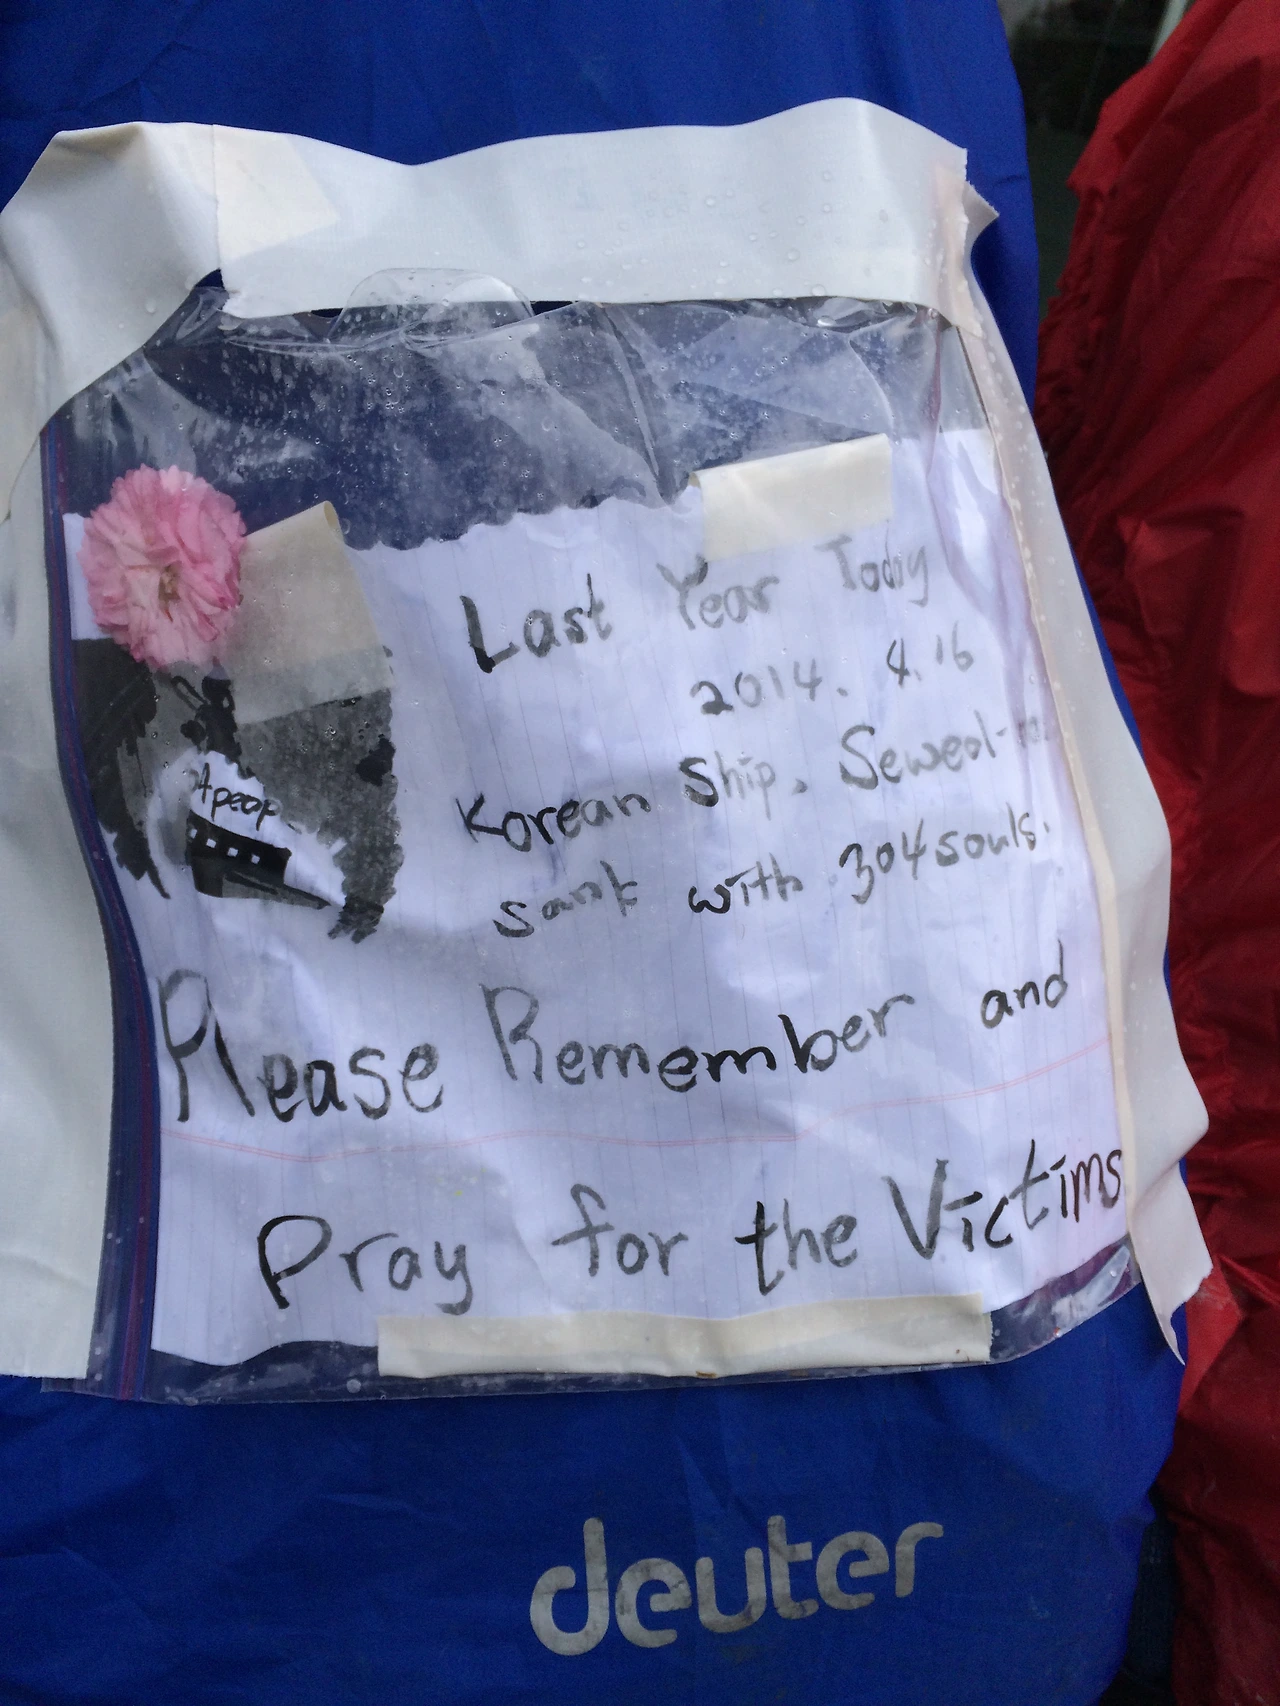 Last Year Today
2014. 4.16
Korean Ship. Sewol-
sank with 304 souls.
4 peop
Please Remember and
Pray for the Victims
deuter